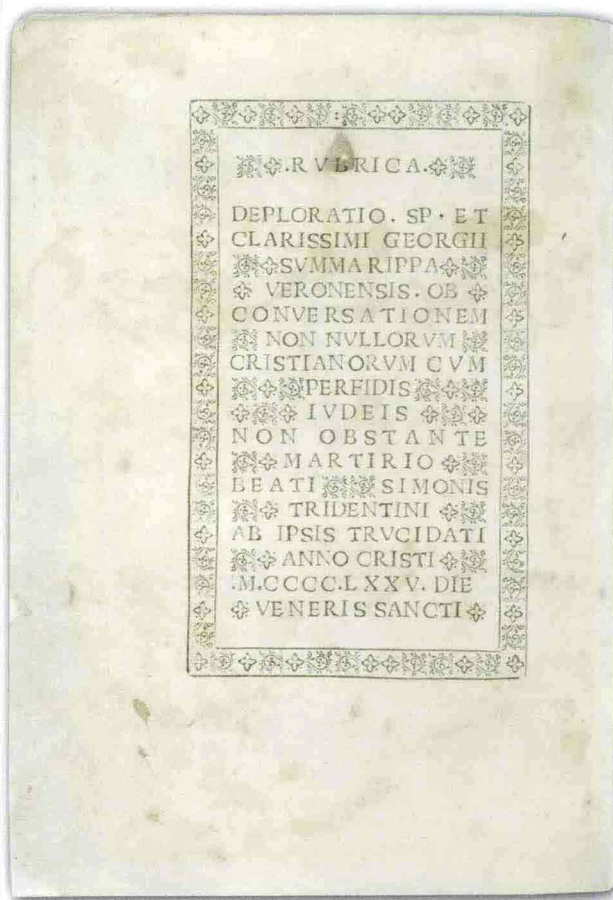 .RVBRICA.
DEPLORATIO. SP. ET
CLARISSIMI GEORGII
SVMMARIPPA
VERONENSIS. OB
CONVERSATIONEM
NON NVLLORVM
CRISTIANORVM CVM
PERFIDIS
IVDEIS
NON OBSTANTE
MARTIRIO
BEATI SIMONIS
TRIDENTINI
AB IPSIS TRVCIDATI
ANNO CRISTI
.M.CCCC.LXXV. DIE
VENERIS SANCTI